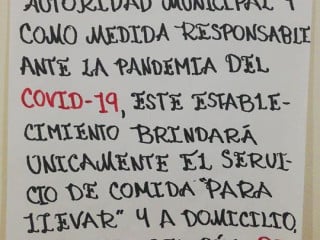 AUTORIDAD MUNICIPAL Y
COMO MEDIDA RESPONSABLE
ANTE LA PANDEMIA DEL
COVID-19, ESTE ESTABLE-
CIMIENTO BRINDARÁ
ÚNICAMENTE EL SERVI-
CIO DE COMIDA "PARA
LLEVAR" Y A DOMICILIO,